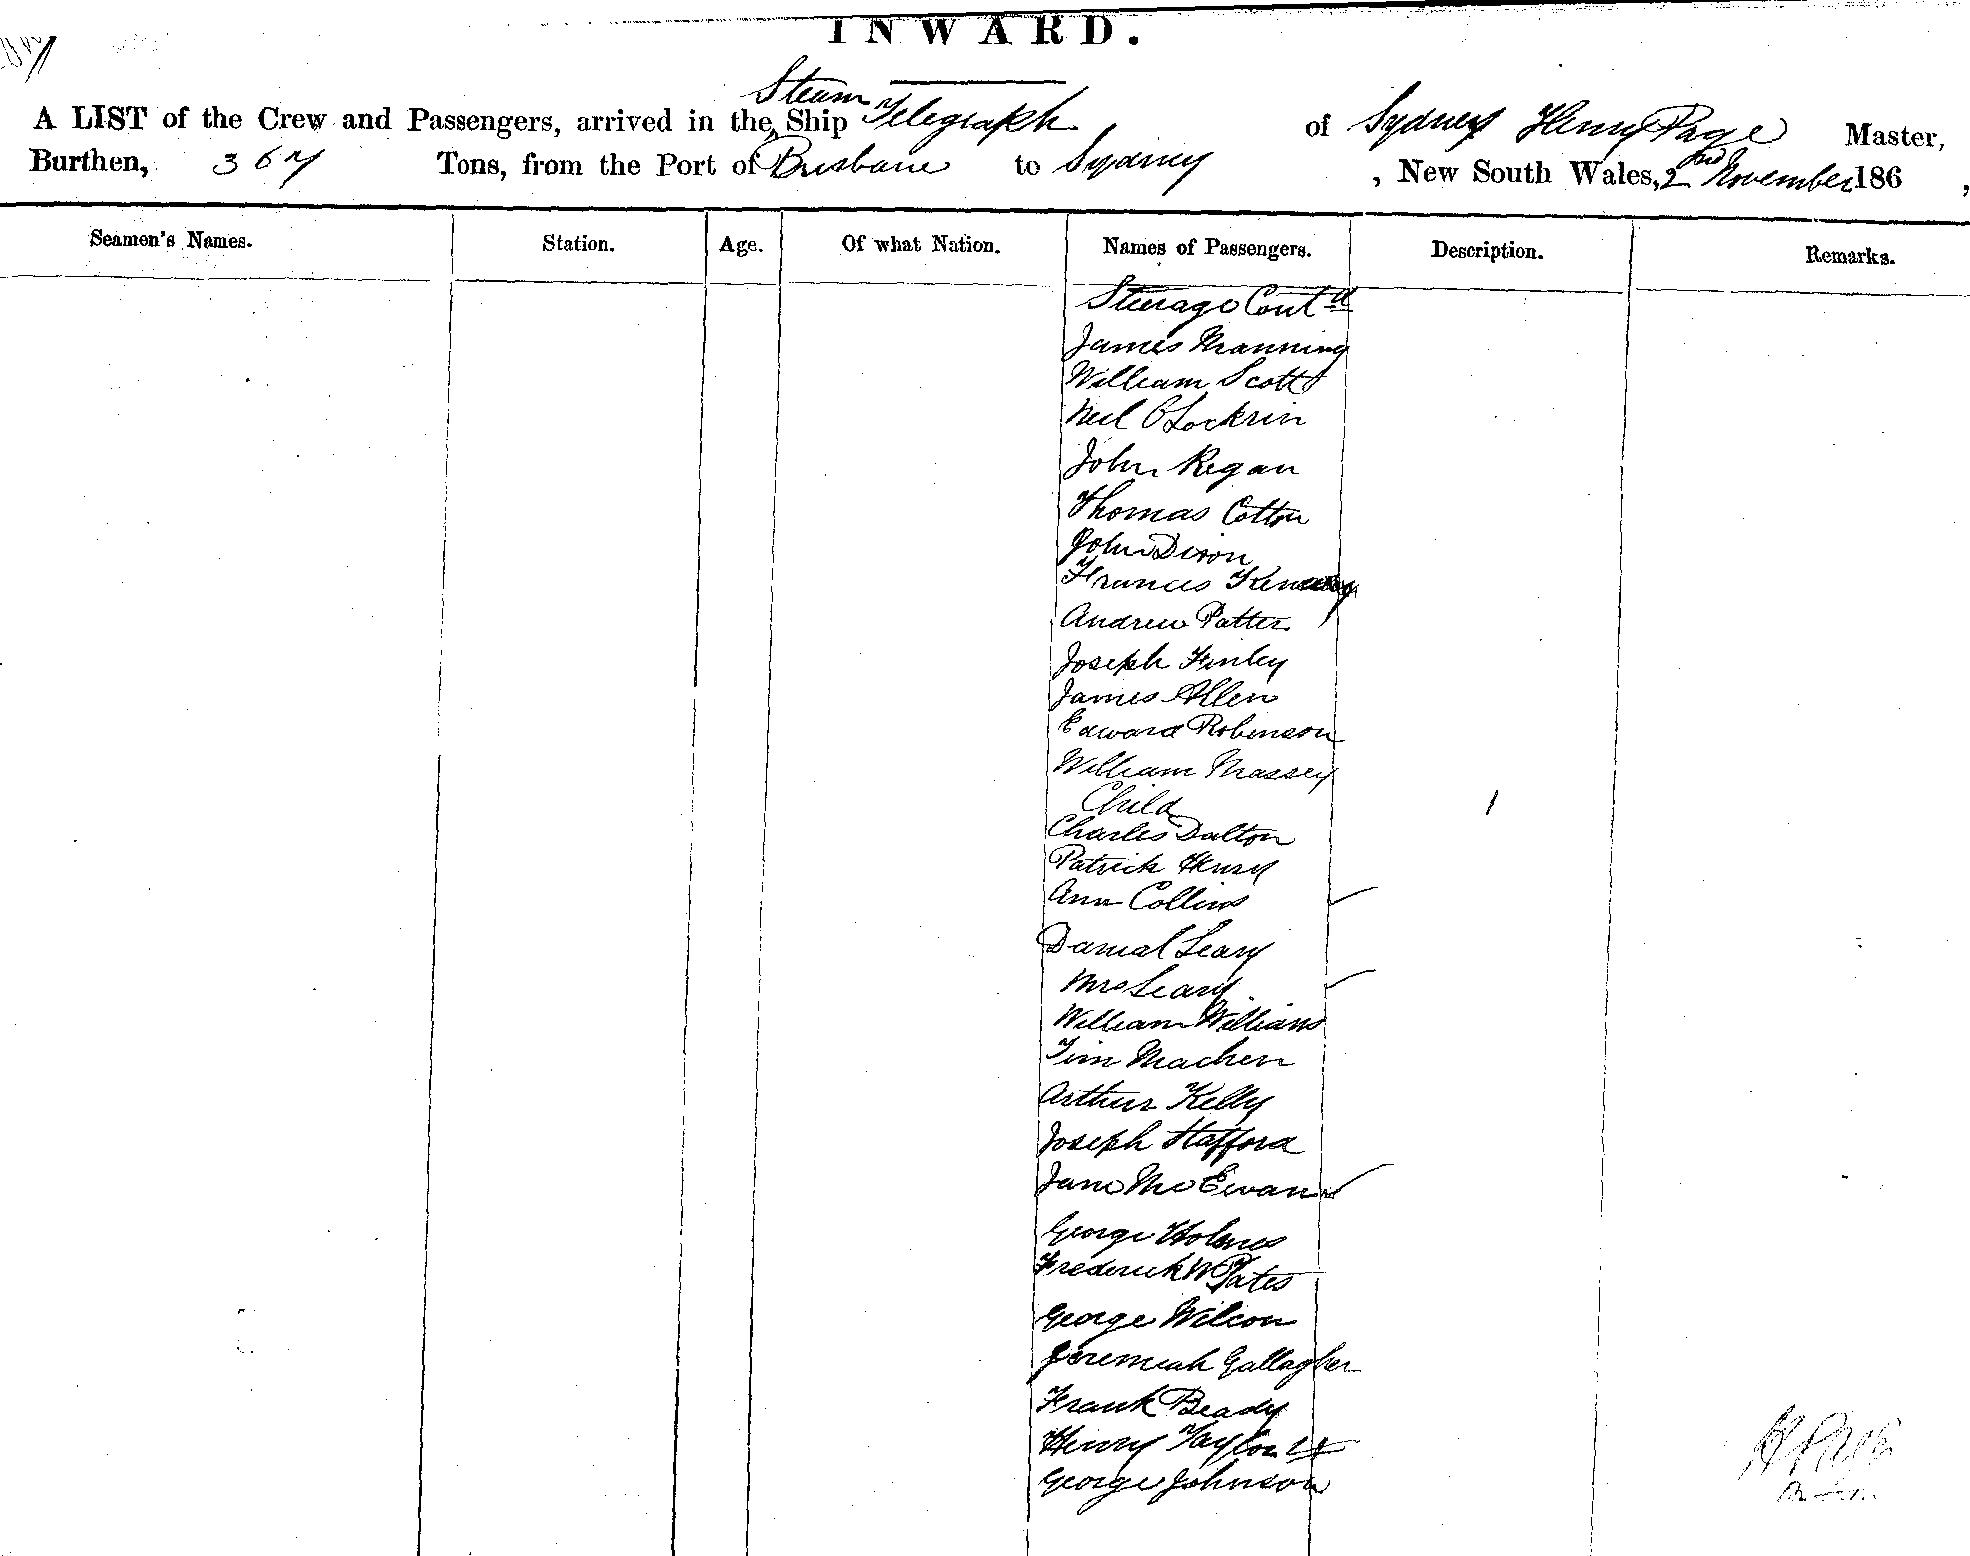 INWARD.
A LIST of the Crew and Passengers, arrived in the Steam Ship Telegraph of Sydney Henry Page Master,
Burthen, 367 Tons, from the Port of Brisbane to Sydney, New South Wales, 2nd November 186 ,
Seamen's Names. Station. Age. Of what Nation. Names of Passengers. Description. Remarks.
Steerage Contd
James Manning
William Scott
Neil OLockrin
John Regan
Thomas Cotton
John Dixon
Frances
Andrew Patter
Joseph Finley
James Allen
Edward Robinson
William Massey
Child 1
Charles Dalton
Patrick Henry
Ann Collins
Danial Leary
Mrs Leary
William Williams
Tim Machen
Arthur Kelly
Joseph Stafford
Jane McEwan
George Holmes
Frederick W Yates
George Wilson
Jeremiah Gallagher
Frank Beady
Henry Taylor
George Johnson
H Page